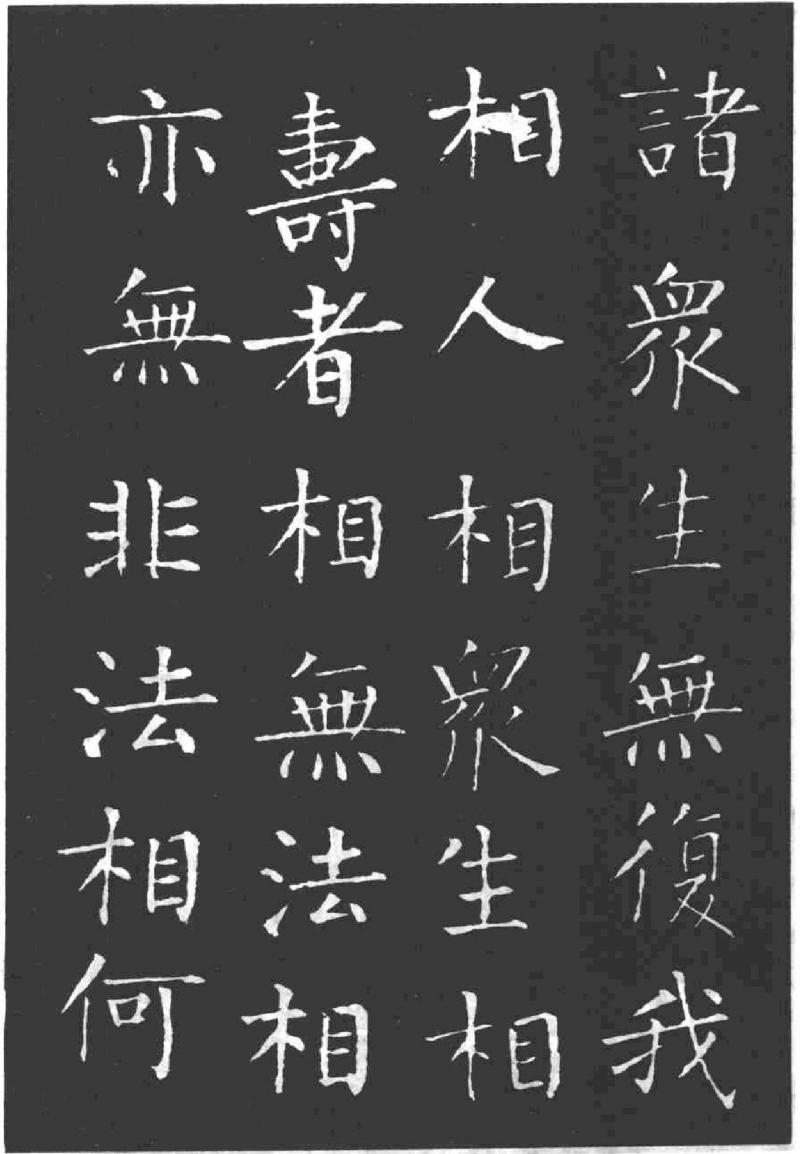 諸眾生無復我
相人相眾生相
壽者相無法相
亦無非法相何